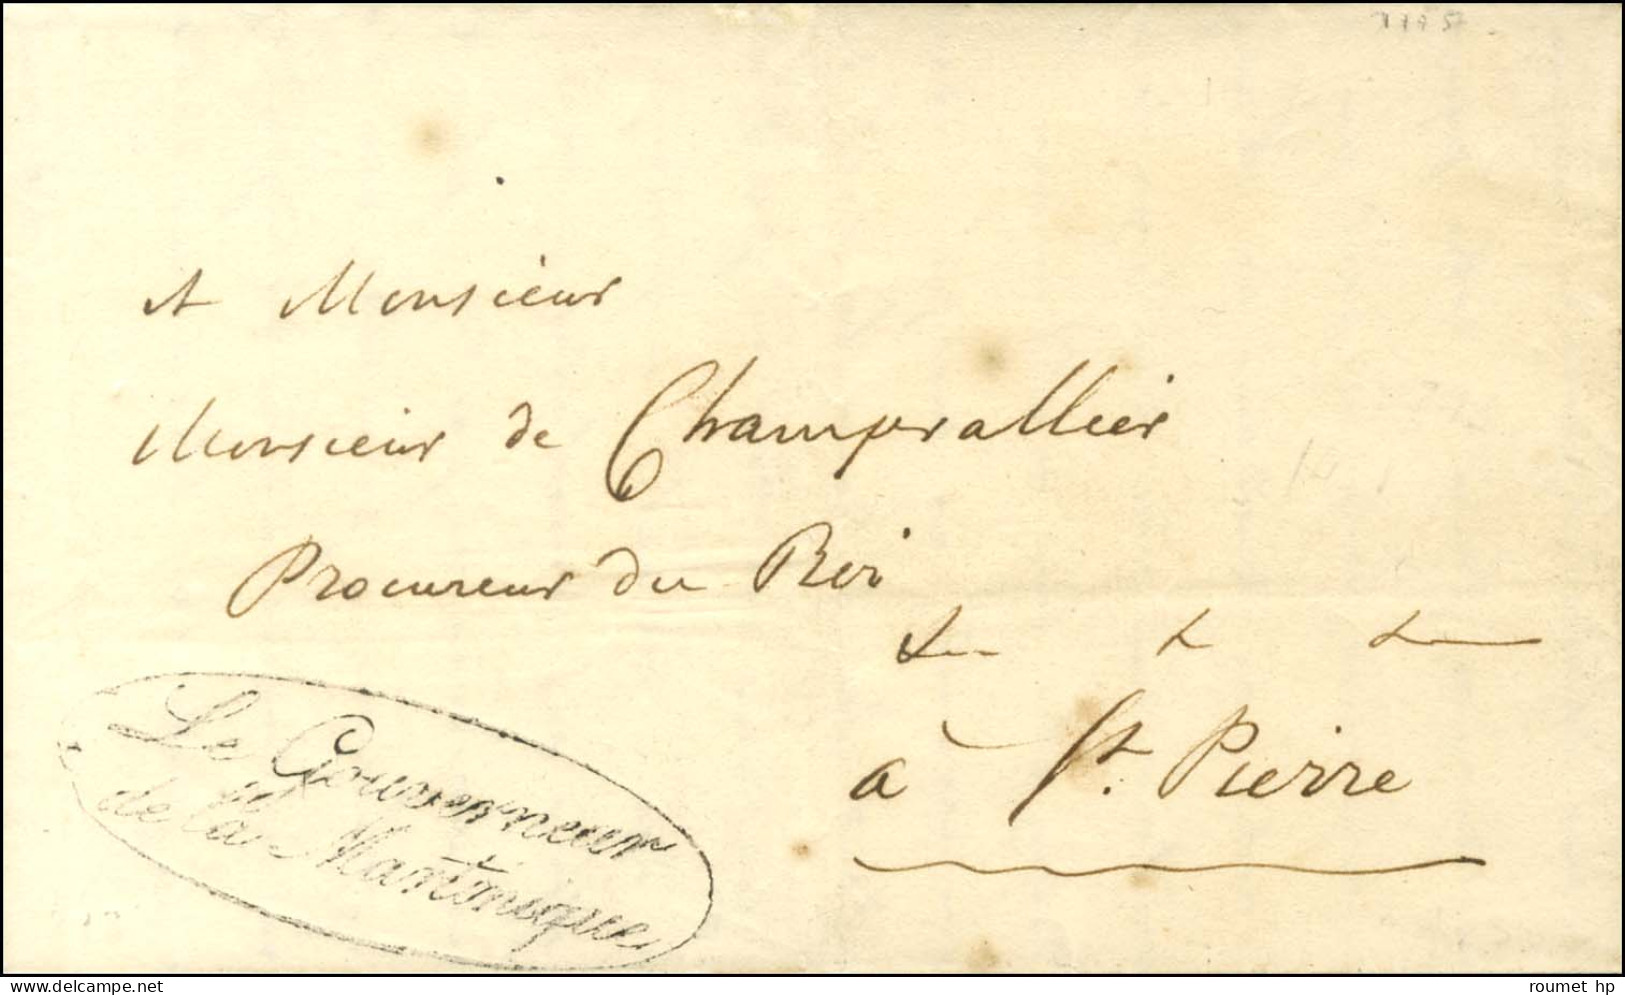 A Monsieur
Monsieur de Champvallier
Procureur du Roi
à St. Pierre
Le Gouverneur
de la Martinique
delcampe.net
roumet hp